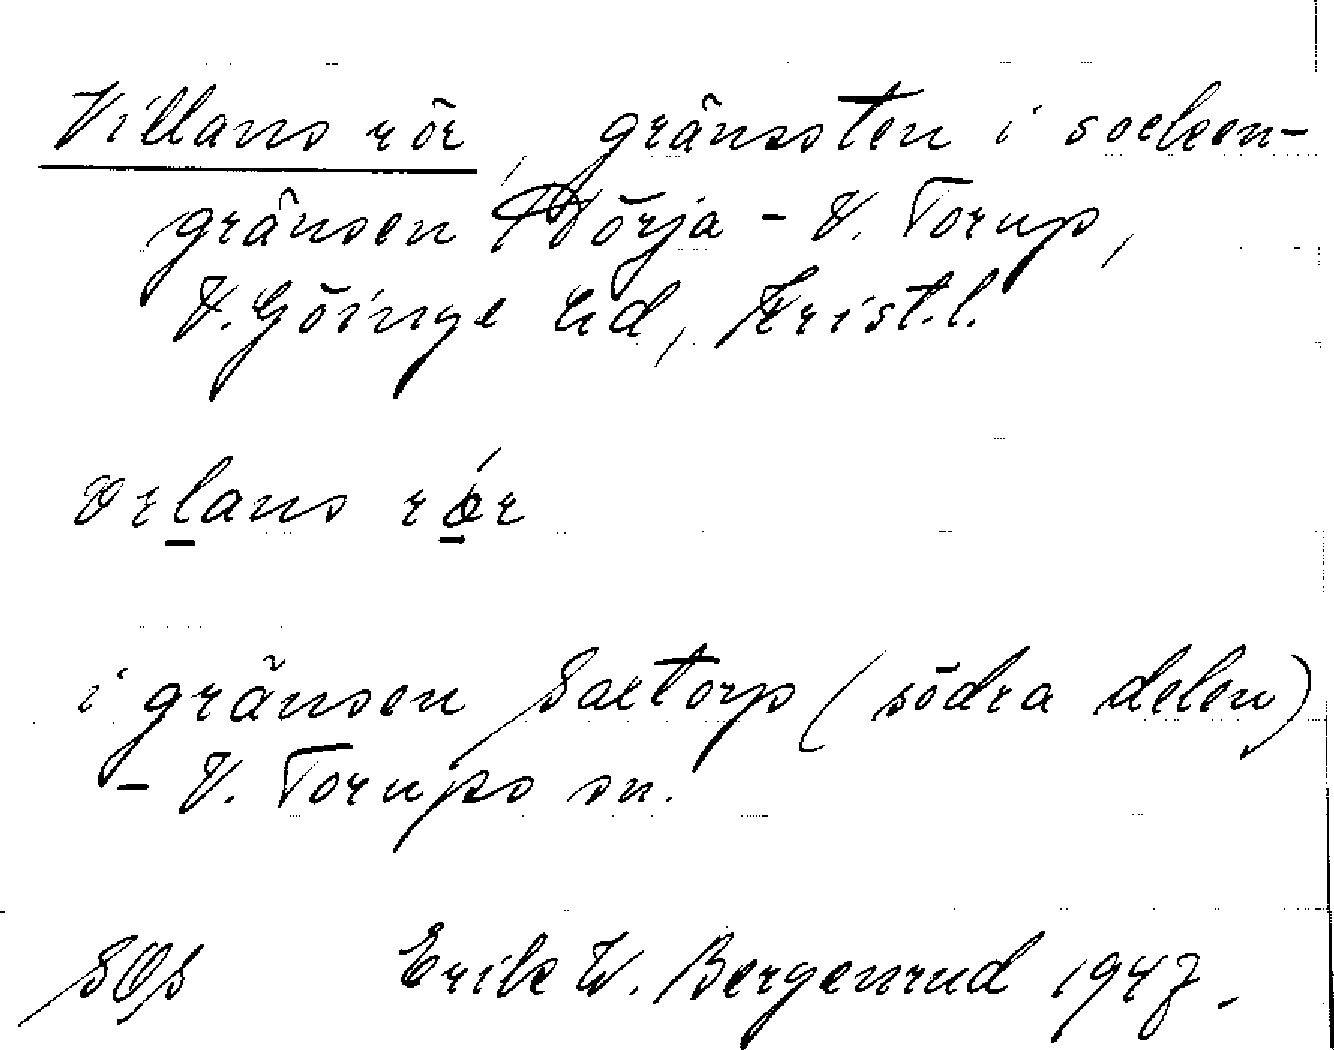 Villans rör, gränssten i socken-
gränsen Nörja - V. Torup,
V. Göinge hd, Krist.l.
vilans rör
i gränsen Saxtorp (södra delen)
- V. Torups sn.
Erik W. Bergenrud 1947.